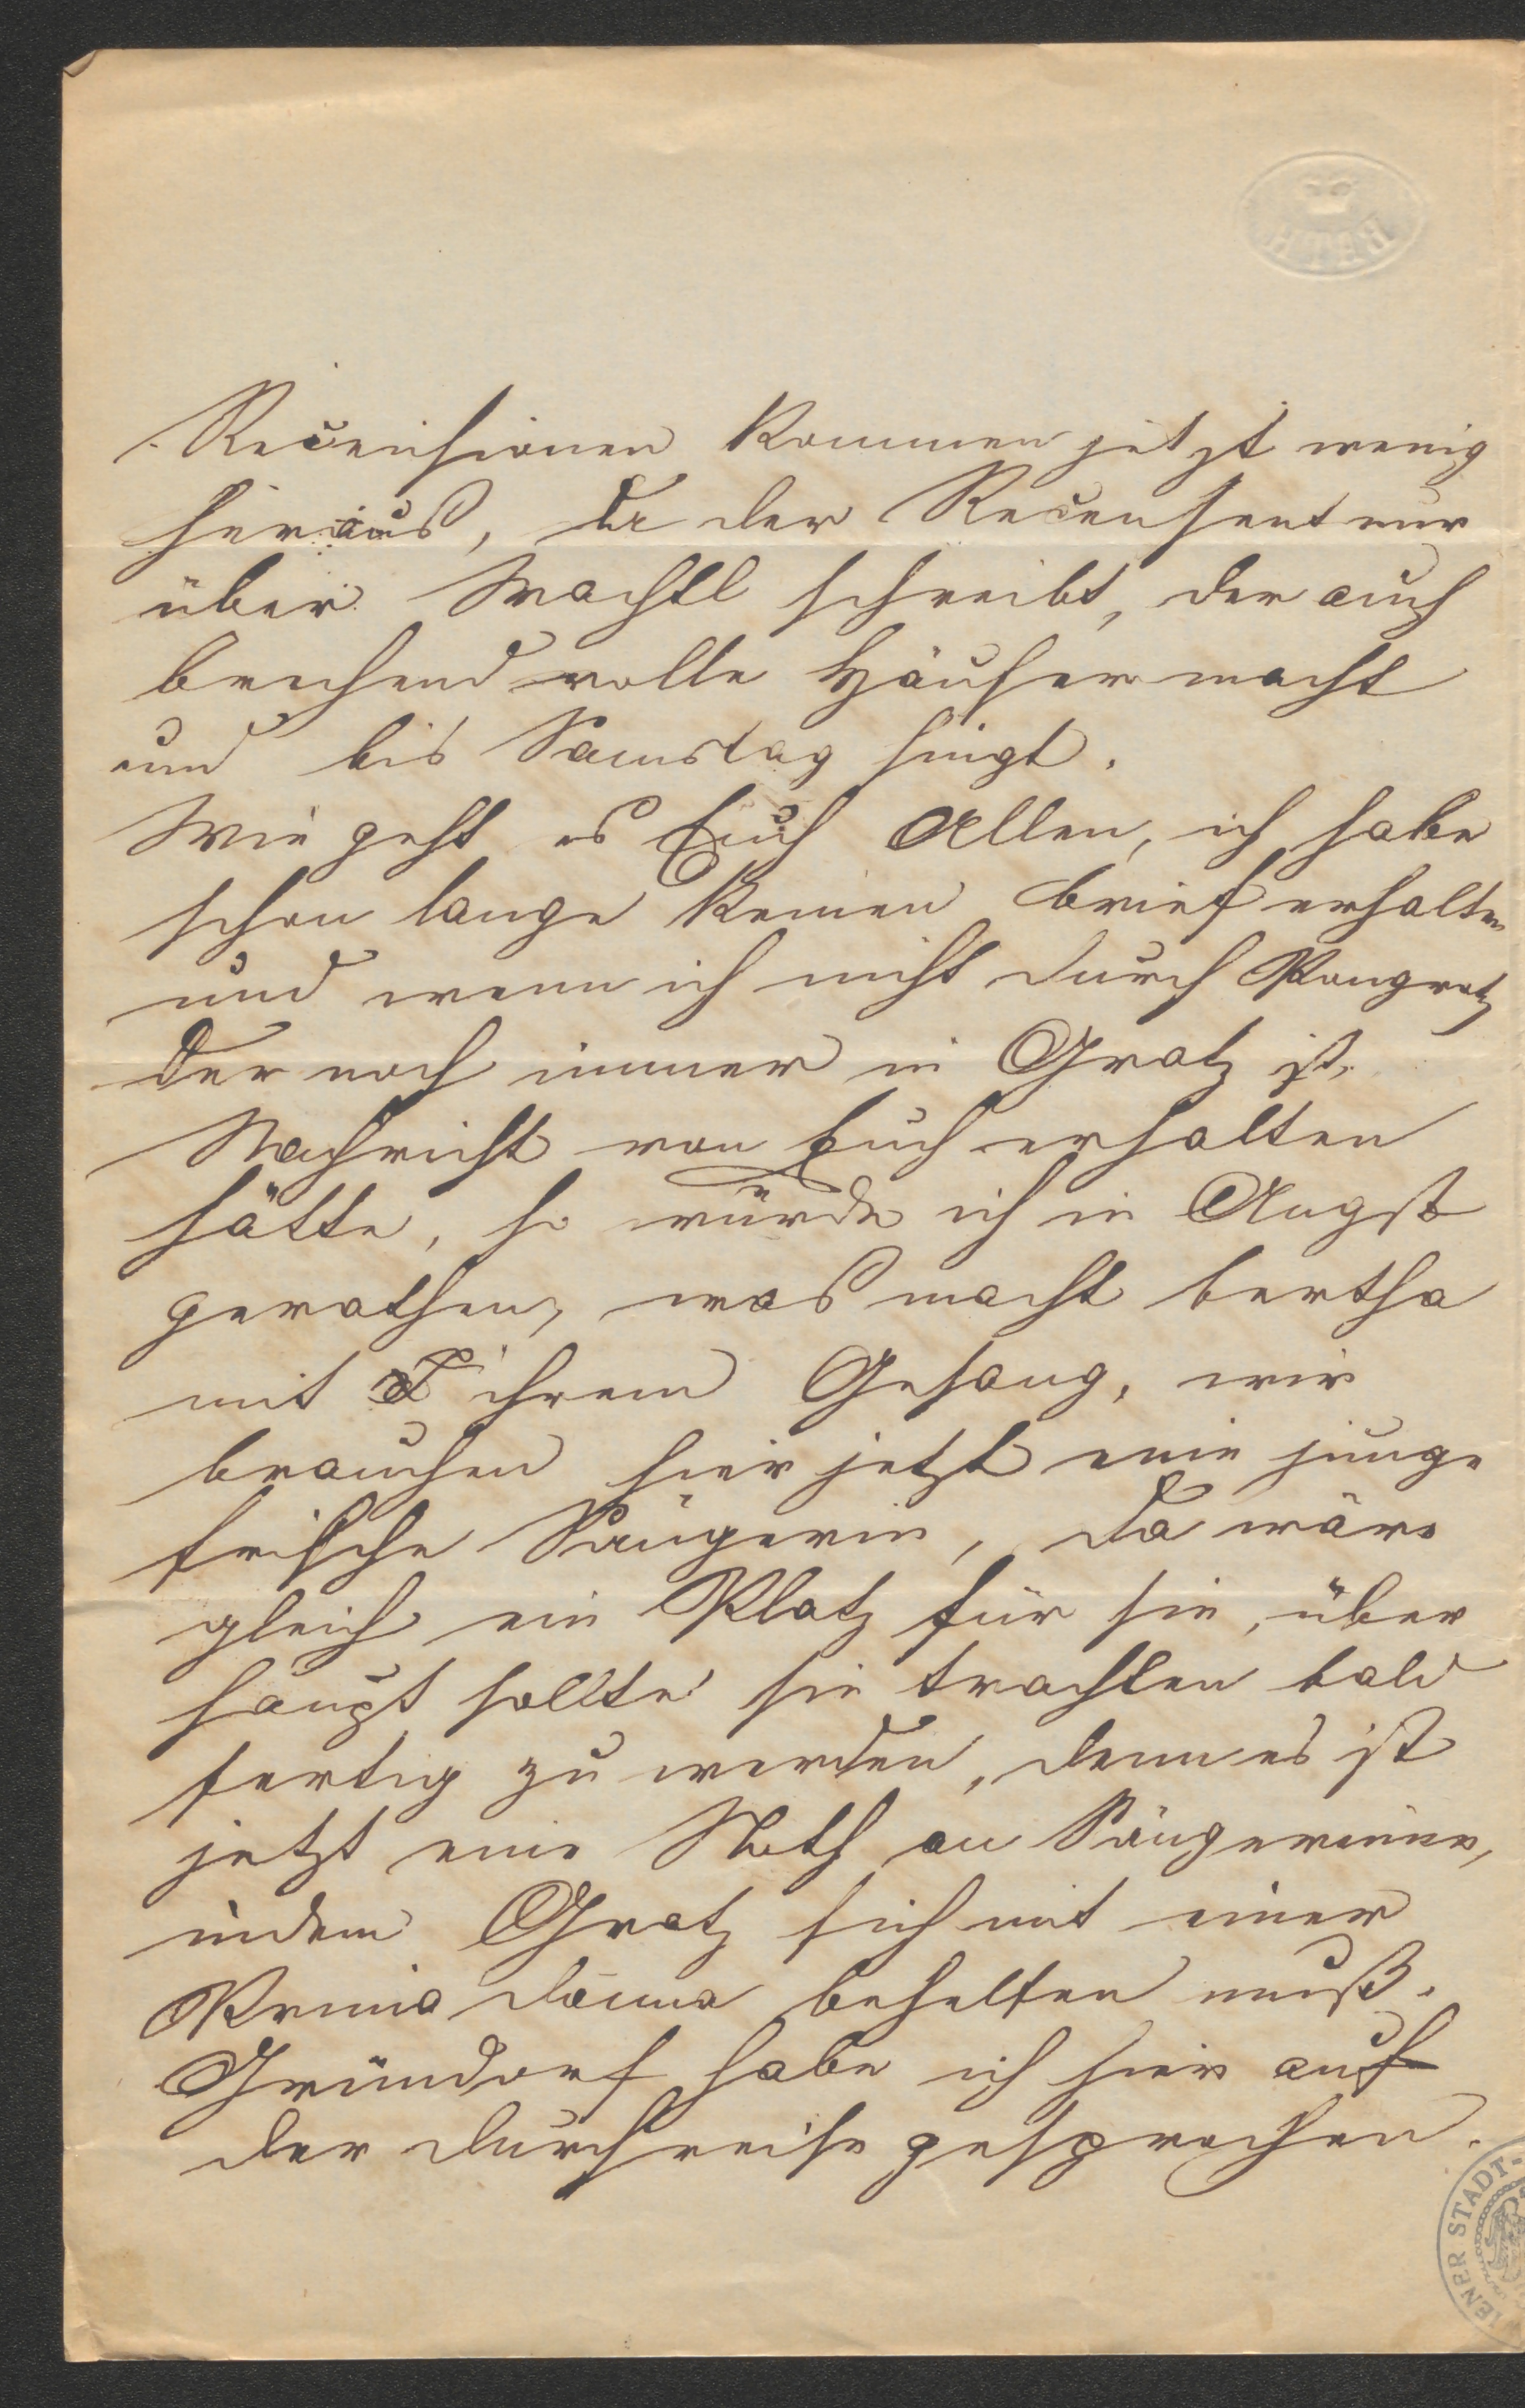 BATH
Recensionen kommen jetzt wenig
heraus, da der Recensent nur
über Wachtl schreibt, der auch
brechend volle Häuser macht
und bis Samstag singt.
Wie geht es Euch Allen, ich habe
schon lange keinen Brief erhalten
und wenn ich nicht durch Pongratz
der noch immer in Gratz ist,
Nachricht von Euch erhalten
hätte, so würde ich in Angst
gerathen, was macht Bertha
mit ihrem Gesang, wir
brauchen hier jetzt eine junge
frische Sängerin, da wäre
gleich ein Platz für sie, über
haupt sollte sie trachten bald
fertig zu werden, denn es ist
jetzt eine Noth an Sängerinen,
indem Gratz sich mit einer
Prima donna behelfen muß.
Gründorf habe ich hier auf
der Durchreise gesprochen.
IENER STADT-